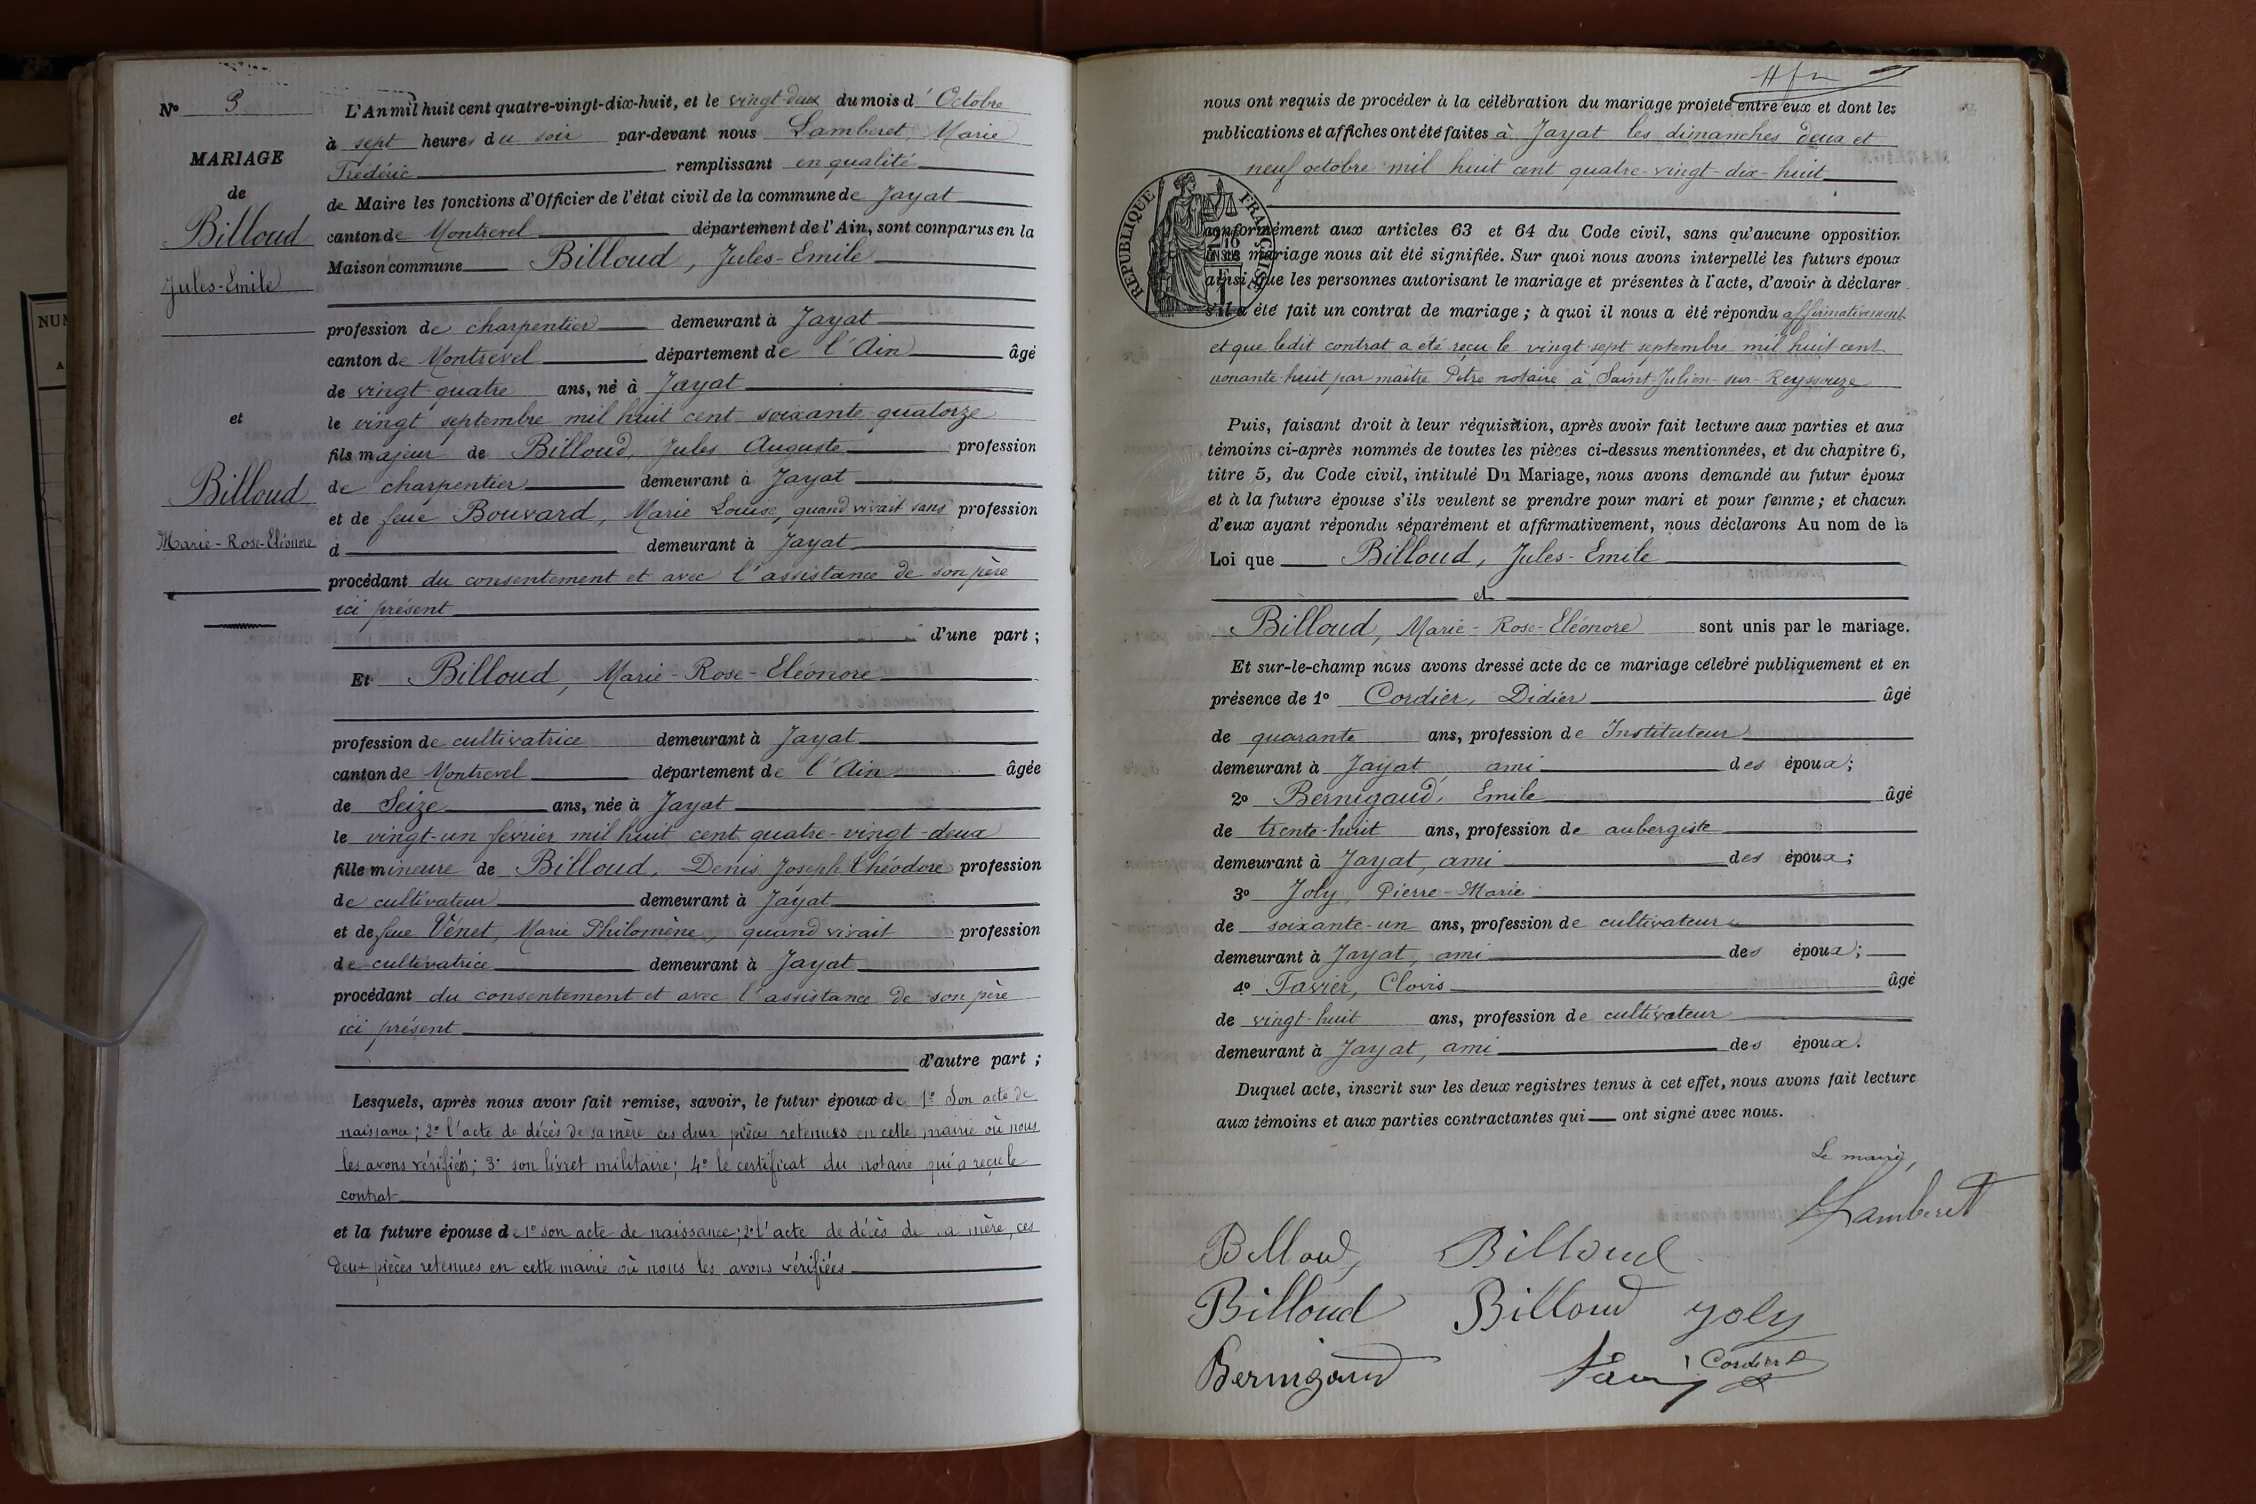 N° 3
MARIAGE
de
Billoud
Jules-Emile
et
Billoud
Marie-Rose-Eléonore
L'An mil huit cent quatre-vingt-dix-huit, et le vingt-deux du mois d'Octobre
à sept heures du soir par-devant nous Lamberet Marie
Frédéric remplissant en qualité
de Maire les fonctions d'Officier de l'état civil de la commune de Jayat
canton de Montrevel département de l'Ain, sont comparus en la
Maison commune Billoud, Jules-Emile
profession de charpentier demeurant à Jayat
canton de Montrevel département de l'Ain âgé
de vingt-quatre ans, né à Jayat
le vingt septembre mil huit cent soixante-quatorze
fils majeur de Billoud, Jules Auguste profession
de charpentier demeurant à Jayat
et de feue Bouvard, Marie Louise, quand vivait sans profession
d demeurant à Jayat
procédant du consentement et avec l'assistance de son père
ici présent
d'une part ;
Et Billoud, Marie-Rose-Eléonore
profession de cultivatrice demeurant à Jayat
canton de Montrevel département de l'Ain âgée
de Seize ans, née à Jayat
le vingt-un février mil huit cent quatre-vingt-deux
fille mineure de Billoud, Denis Joseph Théodore profession
de cultivateur demeurant à Jayat
et de feue Vénet, Marie Philomène, quand vivait profession
de cultivatrice demeurant à Jayat
procédant du consentement et avec l'assistance de son père
ici présent
d'autre part ;
Lesquels, après nous avoir fait remise, savoir, le futur époux de 1° Son acte de
naissance ; 2° l'acte de décès de sa mère ces deux pièces retenues en cette mairie où nous
les avons vérifiées ; 3° son livret militaire ; 4° le certificat du notaire qui a reçu le
contrat
et la future épouse de 1° son acte de naissance ; 2° l'acte de décès de sa mère, ces
deux pièces retenues en cette mairie où nous les avons vérifiées
nous ont requis de procéder à la célébration du mariage projeté entre eux et dont les
publications et affiches ont été faites à Jayat les dimanches deux et
neuf octobre mil huit cent quatre-vingt-dix-huit
REPUBLIQUE FRANÇAISE
conformément aux articles 63 et 64 du Code civil, sans qu'aucune opposition
à ce mariage nous ait été signifiée. Sur quoi nous avons interpellé les futurs époux
ainsi que les personnes autorisant le mariage et présentes à l'acte, d'avoir à déclarer
s'il a été fait un contrat de mariage ; à quoi il nous a été répondu affirmativement
et que ledit contrat a été reçu le vingt sept septembre mil huit cent
nonante-huit par maître Pitre notaire à Saint-Julien-sur-Reyssouze
Puis, faisant droit à leur réquisition, après avoir fait lecture aux parties et aux
témoins ci-après nommés de toutes les pièces ci-dessus mentionnées, et du chapitre 6,
titre 5, du Code civil, intitulé Du Mariage, nous avons demandé au futur époux
et à la future épouse s'ils veulent se prendre pour mari et pour femme ; et chacun
d'eux ayant répondu séparément et affirmativement, nous déclarons Au nom de la
Loi que Billoud, Jules-Emile
et
Billoud, Marie-Rose-Eléonore sont unis par le mariage.
Et sur-le-champ nous avons dressé acte de ce mariage célébré publiquement et en
présence de 1° Cordier, Didier âgé
de quarante ans, profession de Instituteur
demeurant à Jayat ami des époux ;
2° Bernigaud, Emile âgé
de trente-huit ans, profession de aubergiste
demeurant à Jayat, ami des époux ;
3° Joly, Pierre-Marie
de soixante-un ans, profession de cultivateur
demeurant à Jayat, ami des époux ;
4° Favier, Clovis âgé
de vingt-huit ans, profession de cultivateur
demeurant à Jayat, ami des époux.
Duquel acte, inscrit sur les deux registres tenus à cet effet, nous avons fait lecture
aux témoins et aux parties contractantes qui ont signé avec nous.
Le maire,
Lamberet
Billoud Billoud
Billoud Billoud Joly
Bernigaud Cordier D